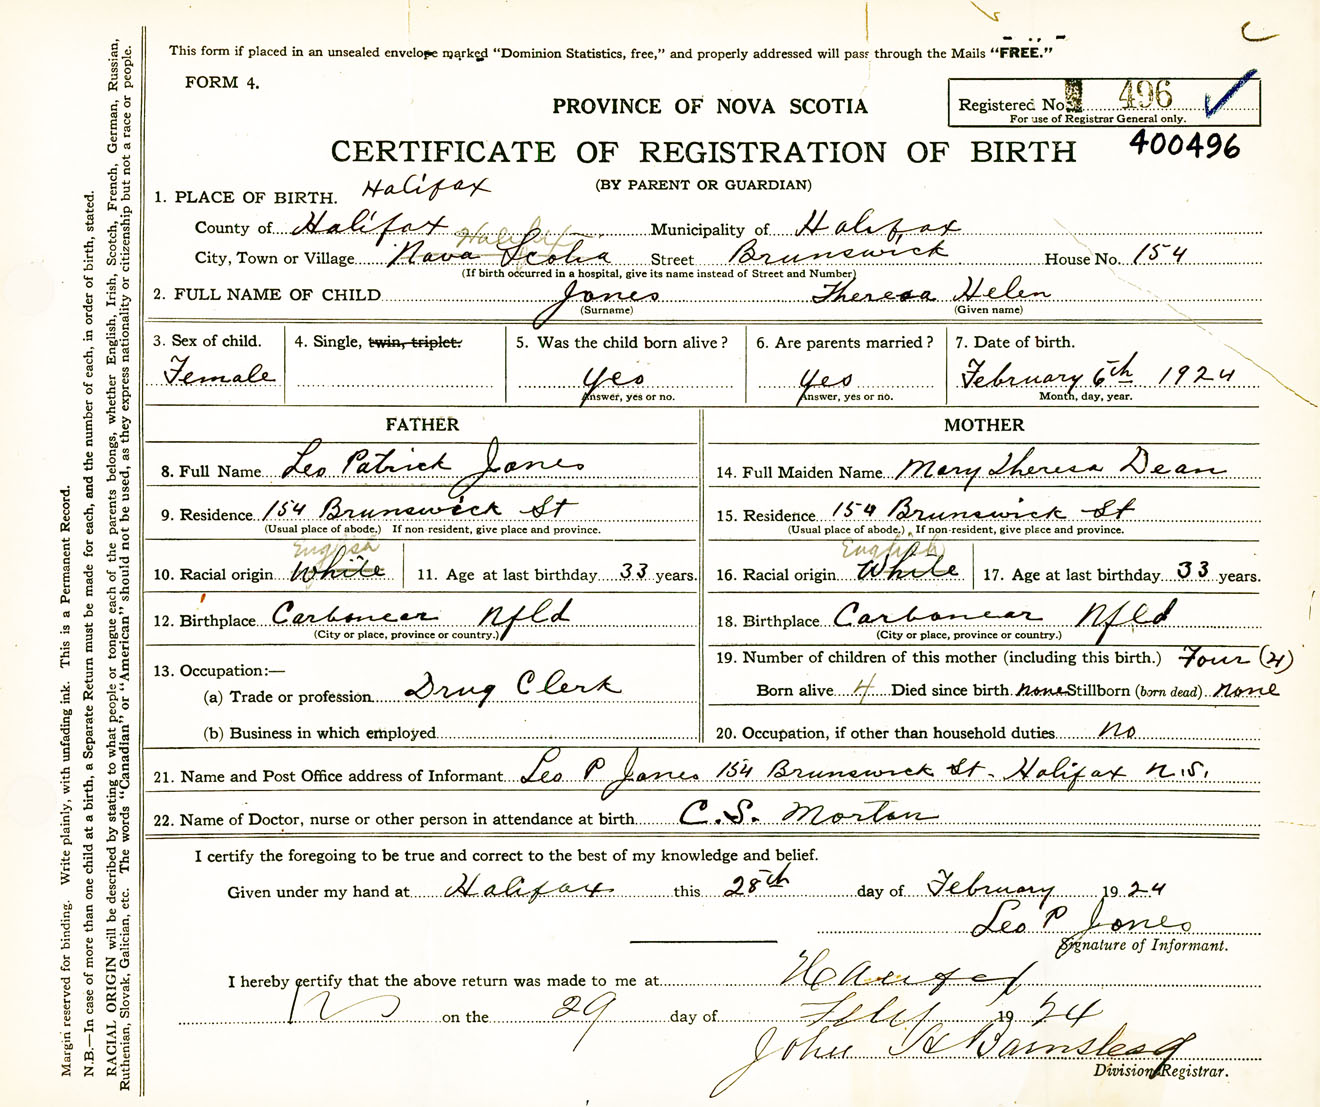 This form if placed in an unsealed envelope marked “Dominion Statistics, free,” and properly addressed will pass through the Mails “FREE.”
FORM 4.
PROVINCE OF NOVA SCOTIA
Registered No. 496
For use of Registrar General only.
CERTIFICATE OF REGISTRATION OF BIRTH 400496
(BY PARENT OR GUARDIAN)
1. PLACE OF BIRTH. Halifax
County of Halifax Municipality of Halifax
Halifax
City, Town or Village Nova Scotia Street Brunswick House No. 154
(If birth occurred in a hospital, give its name instead of Street and Number)
2. FULL NAME OF CHILD Jones Theresa Helen
(Surname) (Given name)
3. Sex of child. 4. Single, twin, triplet. 5. Was the child born alive? 6. Are parents married? 7. Date of birth.
Female yes yes February 6th 1924
Answer, yes or no. Answer, yes or no. Month, day, year.
FATHER MOTHER
8. Full Name Leo Patrick Jones 14. Full Maiden Name Mary Theresa Dean
9. Residence 154 Brunswick St 15. Residence 154 Brunswick St
(Usual place of abode.) If non-resident, give place and province. (Usual place of abode.) If non-resident, give place and province.
English English
10. Racial origin White 11. Age at last birthday 33 years. 16. Racial origin White 17. Age at last birthday 33 years.
12. Birthplace Carbonear Nfld 18. Birthplace Carbonear Nfld
(City or place, province or country.) (City or place, province or country.)
13. Occupation:— 19. Number of children of this mother (including this birth.) Four (4)
(a) Trade or profession Drug Clerk Born alive 4 Died since birth none Stillborn (born dead) none
(b) Business in which employed 20. Occupation, if other than household duties No
21. Name and Post Office address of Informant Leo P Jones 154 Brunswick St. Halifax N.S.
22. Name of Doctor, nurse or other person in attendance at birth C.S. Morton
I certify the foregoing to be true and correct to the best of my knowledge and belief.
Given under my hand at Halifax this 28th day of February 1924
Leo P Jones
Signature of Informant.
I hereby certify that the above return was made to me at Halifax
on the 29 day of Feby 1924
John A Barnstead
Division Registrar.
Margin reserved for binding. Write plainly, with unfading ink. This is a Permanent Record.
N.B.—In case of more than one child at a birth, a Separate Return must be made for each, and the number of each, in order of birth, stated.
RACIAL ORIGIN will be described by stating to what people or tongue each of the parents belongs, whether English, Irish, Scotch, French, German, Russian,
Ruthenian, Slovak, Galician, etc. The words “Canadian” or “American” should not be used, as they express nationality or citizenship but not a race or people.